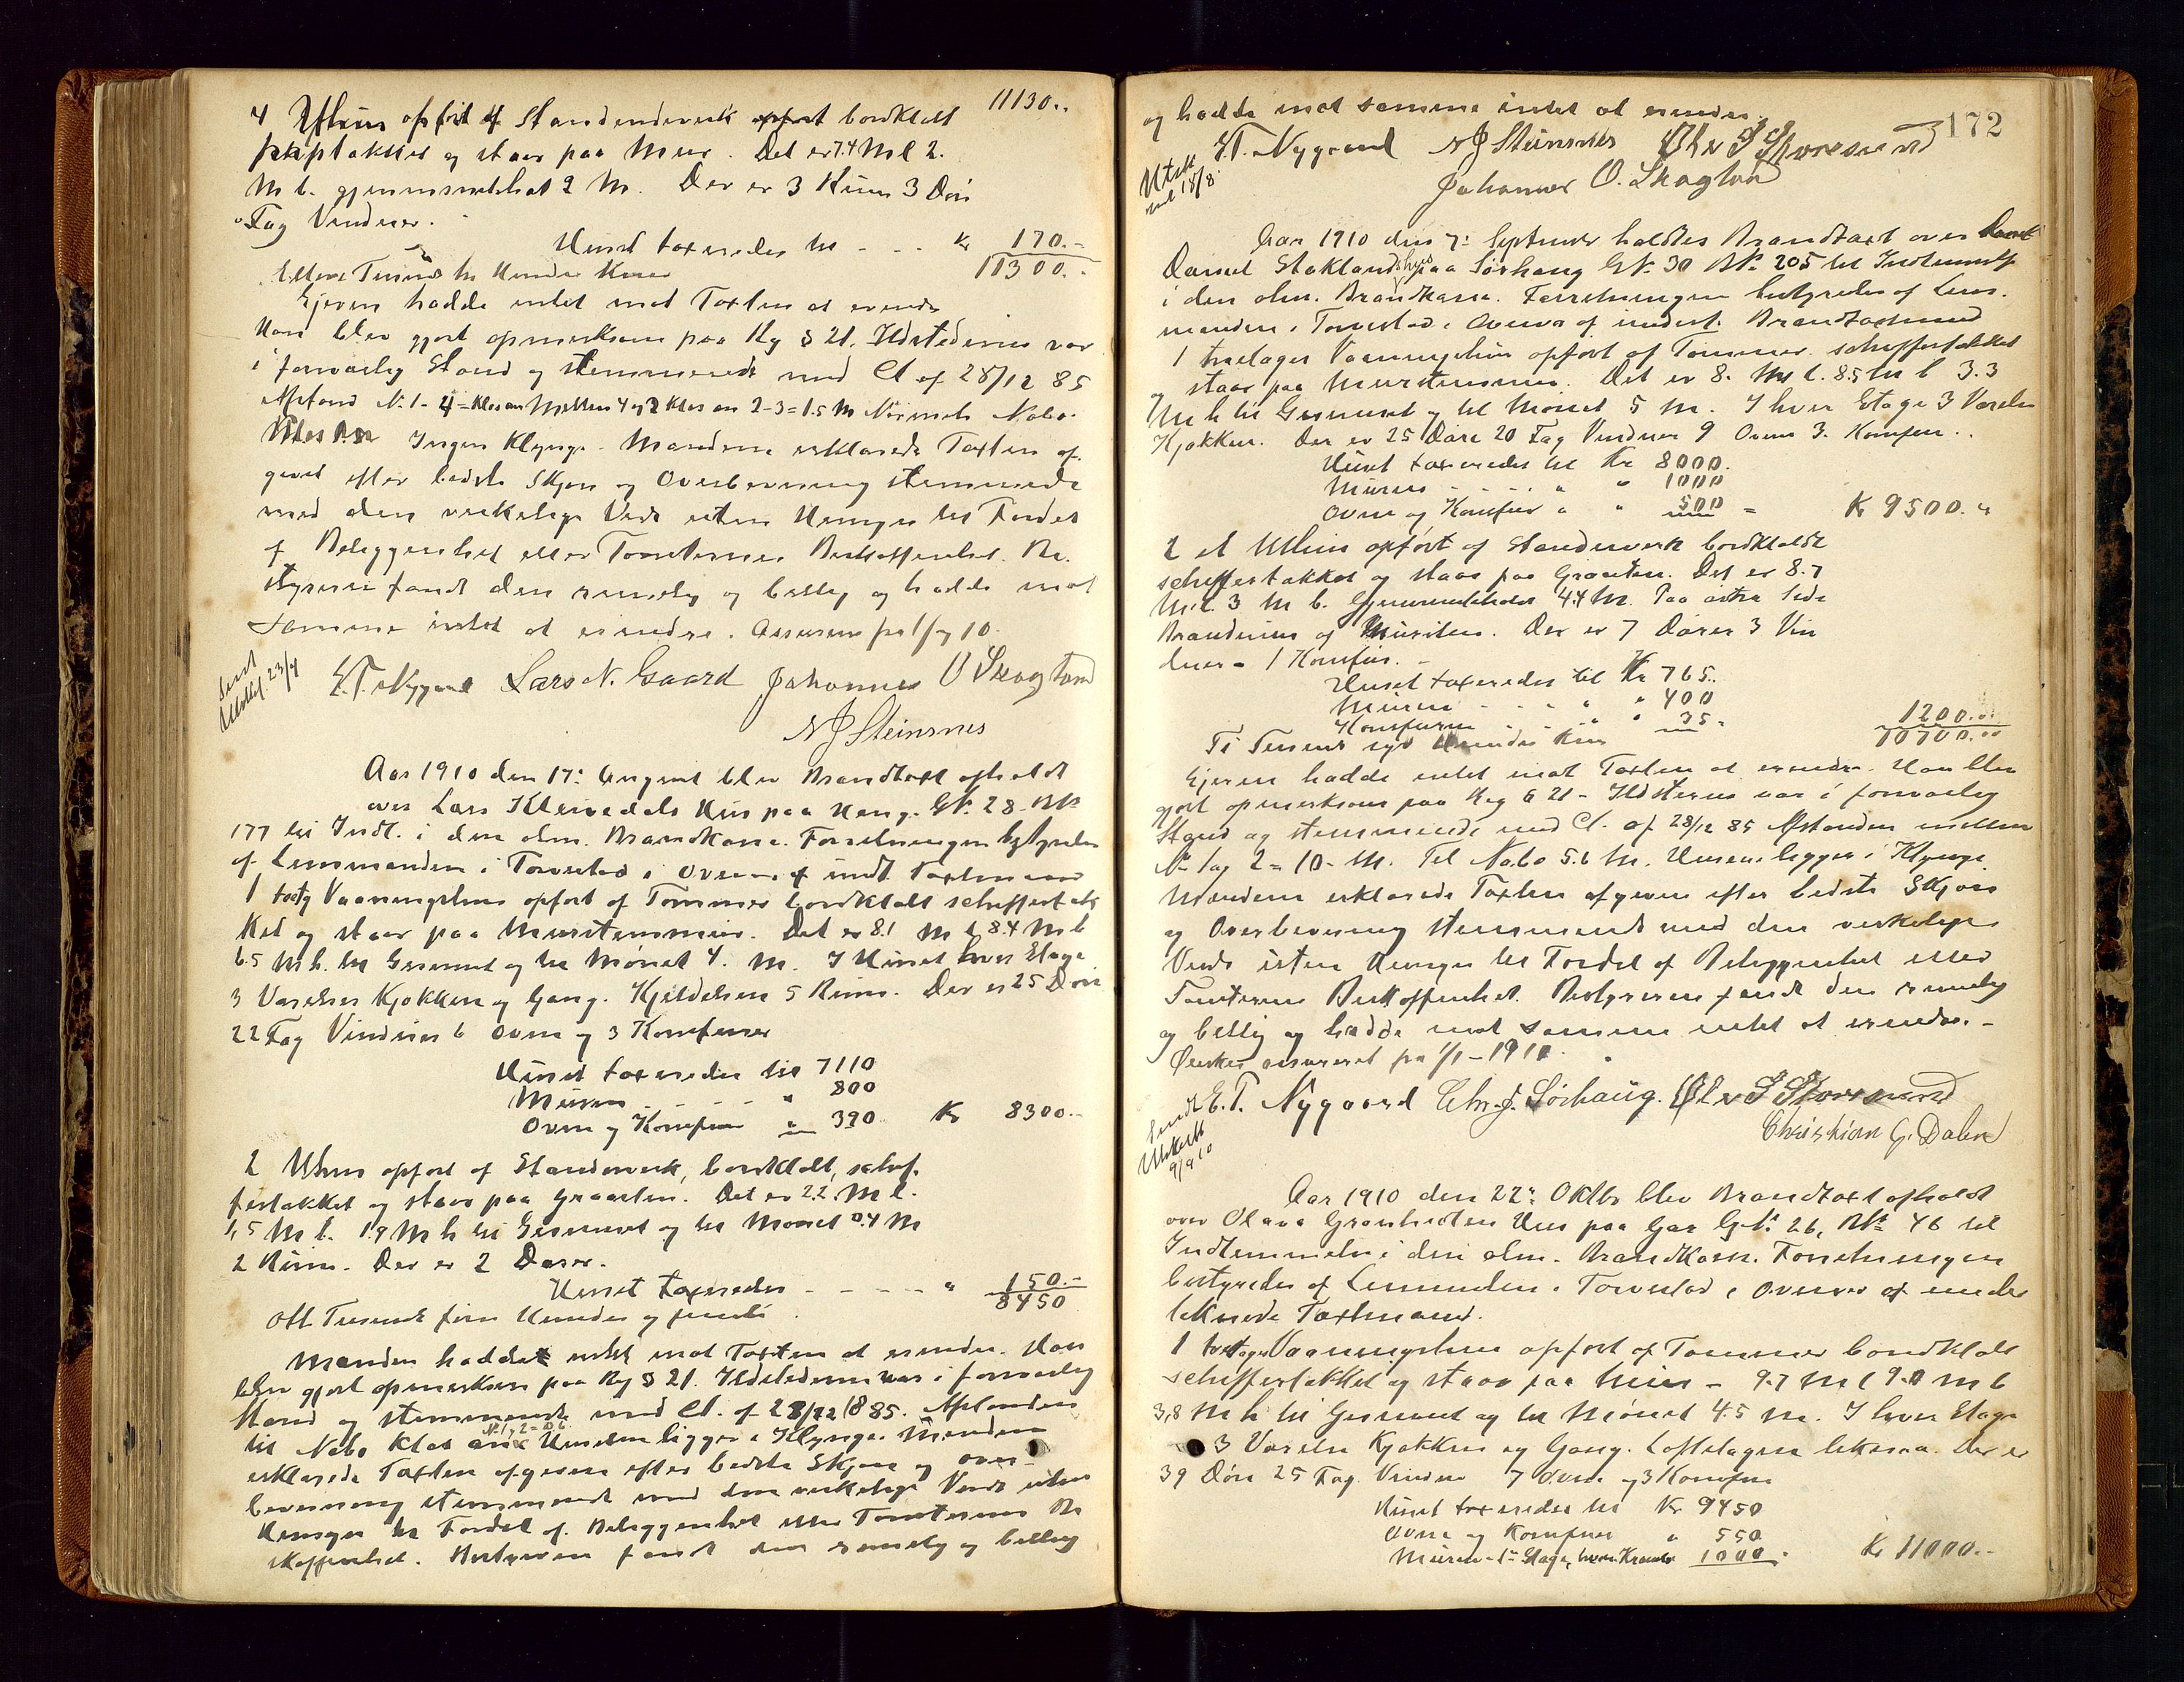 11130..
4 Uthus opført af Standenderverk bordklædt
paptækket og staar paa Mur. Det er 7.4 M l 2.
M b. gjennemsnitshøi 2 M. Der er 3 Rum 3 Døre
Fag Vinduer.
Huset taxeredes til - - - Kr 170.-
Elleve Tusinde tre Hundre Kroner 11300.-
Ejeren hadde intet mod Taxten at erindre
Han blev gjort opmerksom paa Rg § 21. Ildstederne var
i forsvarlig Stand og stemmende med Cl af 28/12 85
Afstand N. 1 - 4 = Klos an Mellem 4 og 2 Klos an 2-3 = 1.5 M Nærmeste Nabo
Klos an Ingen Klynge. Mændene erklærede Taxten af-
givet efter bedste Skjøn og Overbevisning stemmende
med den virkelige Værdi uten Hensyn til Fordel
af Beliggenhet eller Tomternes Beskaffenhet. Be-
styreren fandt den rimelig og billig og hadde mod
samme intet at erindre. Assureres fra 1/7 10.
Sent
Utskrift 23/7
E.T. Nygaard Lars N. Gaard Johannes O Skogland
N J Steinsnes
Aar 1910 den 17: August blev Brandtaxt afholdt
over Lars Kleivedals Hus paa Haug. G.N. 28 - BN
177 til Indt. i den alm. Brandkasse. Forretningen bestyredes
af Lensmanden i Torvestad i Overvær af undt. Taxtmænd
1 toetg Vaaningshus opført af Tømmer bordklædt skiffertæk
ket og staar paa Murstensmur. Det er 8.1 M l 8.4 M b
6.5 M h. til Gesimset og til Mønet 4. M. I Huset hver Etage
3 Værelser Kjøkken og Gang. Kjelderen 5 Rum. Der er 25 Døre
22 Fag Vinduer 6 Ovne og 3 Komfurer
Huset taxeredes til 7110
Muren - - - - " 800
Ovne og Komfurer " 390 Kr 8300.-
2 Uthus opført af Standerverk, bordklædt, skif-
fertækket og staar paa Graasten. Det er 2.2 M l.
1,5 M b. 1.9 M h til Gesimset og til Mønet 0.4 M
2 Rum. Der er 2 Dører.
Huset taxeredes - - - - " 150.-
8450
Otte Tusinde fire Hundre og femti
Manden hadde intet mod Taxten at erindre. Han
blev gjort opmerksom paa Rg § 21. Ildstederne var i forsvarlig
Stand og stemmende med Cl. af 28/12 1885. Afstanden
til Nabo Klos an Husene ligger i Klynge. Mændene
erklærede Taxten afgiven efter bedste Skjøn og over-
bevisning stemmende med den virkelige Værdi uten
Hensyn til Fordel af. Beliggenhet eller Tomternes Be
skaffenhet. Bestyreren fandt den rimelig og billig
172
og hadde mod samme intet at erindre.
Utskr
sent 18/8.
E.T. Nygaard N J Steinsnes Ole S Storesund
Johannes O. Skogland
Aar 1910 den 7: September holdtes Brandtaxt over
Daniel Staklands hus paa Sørhaug G.N. 30 B.N. 205 til Indtemmelse
i den alm. Brandkasse. Forretningen bestyredes af Lens-
manden i Torvestad i Overvær af undert. Brandtaxtmænd
1 treetages Vaaningshus opført af Tømmer skiffertækket
og staar paa Murstensmur. Det er 8. M l. 8.5 M b 3.3
M h til Gesimset og til Mønet 5 M. I hver Etage 3 Værelser
Kjøkken. Der er 25 Døre 20 Fag Vinduer 9 Ovne 3. Komfurer.
Huset taxeredes til Kr 8000.
Muren - - - - " " 1000
Ovne og Komfurer " " 500 = Kr 9500. "
2 et Uthus opført af Standerverk bordklædt
skiffertækket og staar paa Graasten. Det er 8.7
M l. 3 M b. Gjennemsnitshøide 4.4 M. Paa østre Side
Brandmur af Mursten. Der er 7 Dører 3 Vin
duer - 1 Komfur. -
Huset taxeredes til Kr 765..
Muren - - - " " 400
Komfuren - - " " 35 - 1200..
Ti Tusinde syv Hundre Kroner 10700.00
Ejeren hadde intet mod Taxten at erindre. Han blev
gjort opmerksom paa Reg § 21 - Ildstederne var i forsvarlig
Stand og stemmende med Cl. af 28/12 85 Afstanden mellem
N. 1 og 2 = 10. M. Til Nabo 5.6 M. Husene ligger i Klynge.
Mændene erklærede Taxten afgiven efter bedste Skjøn
og Overbevisning stemmende med den virkelige
Værdi uten Hensyn til Fordel af Beliggenhet eller
Tomternes Beskaffenhet. Bestyreren fandt den rimelig
og billig og hadde mod samme intet at erindre. -
Ønskes assureret fra 1/1 - 1911.
Sendt
Utskrift
9/9 10
E.T. Nygaard Chr. J. Sørhaug. Ole S Storesund
Christian G. Dalen
Aar 1910 den 22: Oktbr blev Brandtaxt afholdt
over Olava Grønhedens Hus paa Gar G.N. 26, BN 46 til
Indtemmelse i den alm. Brandkasse. Forretningen
bestyredes af Lensmanden i Torvestad i Overvær af under
teknede Taxtmænd.
1 toetages Vaaningshus opført af Tømmer bordklædt
skiffertækket og staar paa Mur - 9.7 M l 9.0 M b
3,8 M h til Gesimset og til Mønet 4.5 M. I hver Etage
3 Værelser Kjøkken og Gang. Loftetagen likesaa. Der er
39 Døre 25 Fag Vinduer 7 Ovne og 3 Komfurer
Huset taxeredes til Kr 9450
Ovne og Komfurer " 550
Muren - 1000. Kr 11000.-